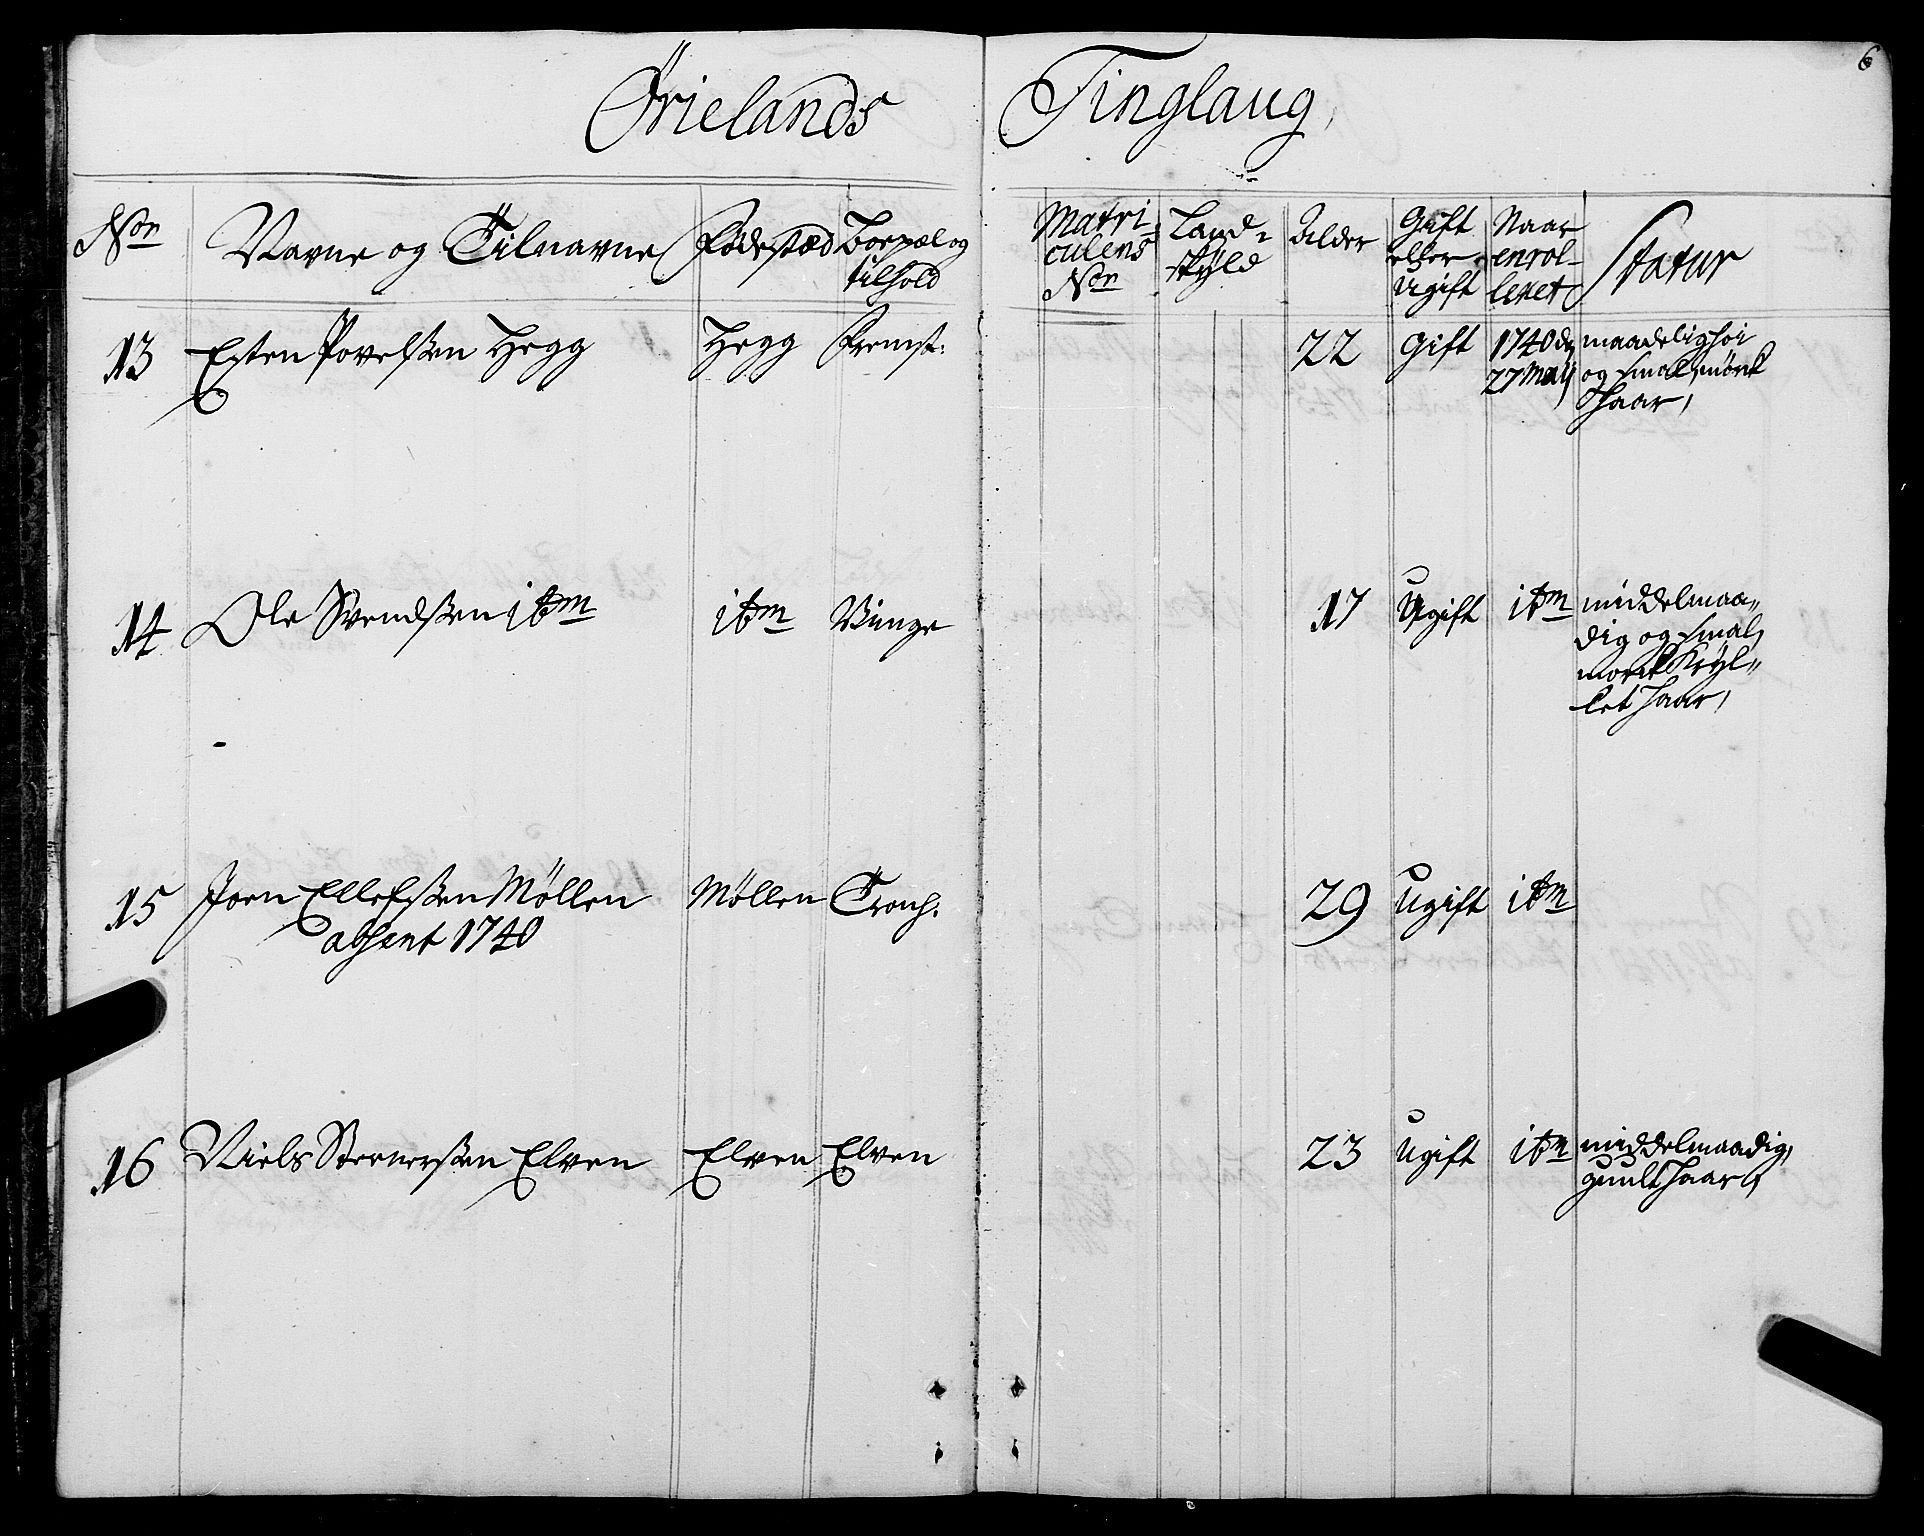 Ørielands Tinglaug,
6
Nor Navne og Tilnavne Fødestæd Boepæl og tilhold Matriculens Nor Landskyld Alder Gift eller Ugift Naar enrolleret Statur
13 Esten Povelsen Hegg Hegg Fremst: 22 Gift 1740 d. 27 Maij maadelig høi
og smal, mørk
Haar,
14 Ole Svendsen itm itm Vinge 17 Ugift itm middelmaa„
dig og smal,
mørk Kryl„
let Haar,
15 Joen Ellefsen Møllen Møllen Tronh. 29 Ugift itm
absent 1740
16 Niels Steenersen Elven Elven Elven 23 Ugift itm middelmaadig,
guult Haar,